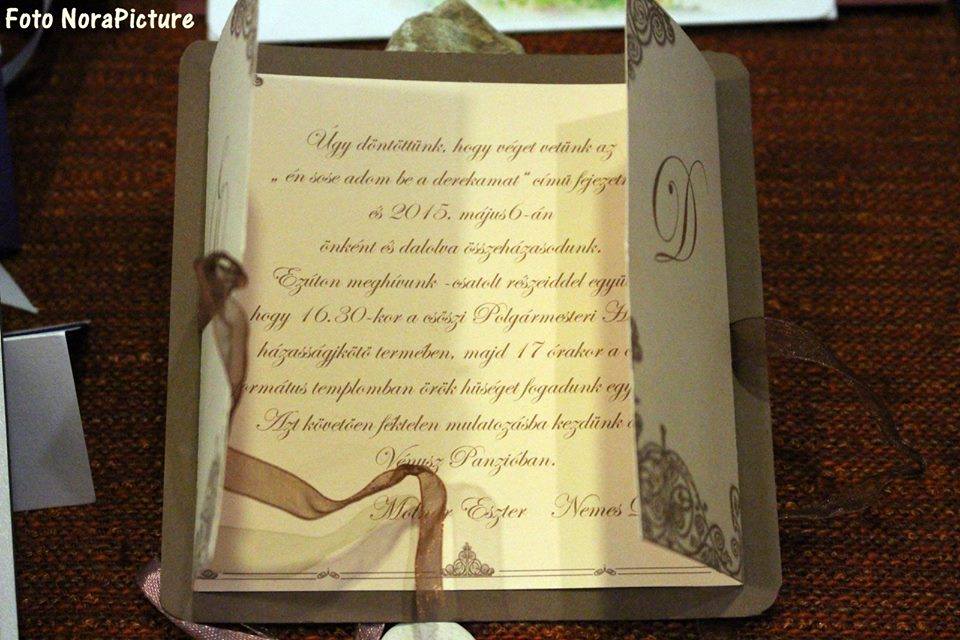 Foto NoraPicture
Úgy döntöttünk, hogy véget vetünk az
„ én sose adom be a derekamat" című
és 2015. május 6-án
önként és dalolva összeházasodunk.
Ezúton meghívunk -csatolt részeiddel
hogy 16.30-kor a csöszi Polgármesteri
házasságjkötö termében, majd 17 órakor a
templomban örök hűséget fogadunk
Azt követöen féktelen mulatozásba kezdünk
Vénusz Panzióban.
Eszter Nemes
D